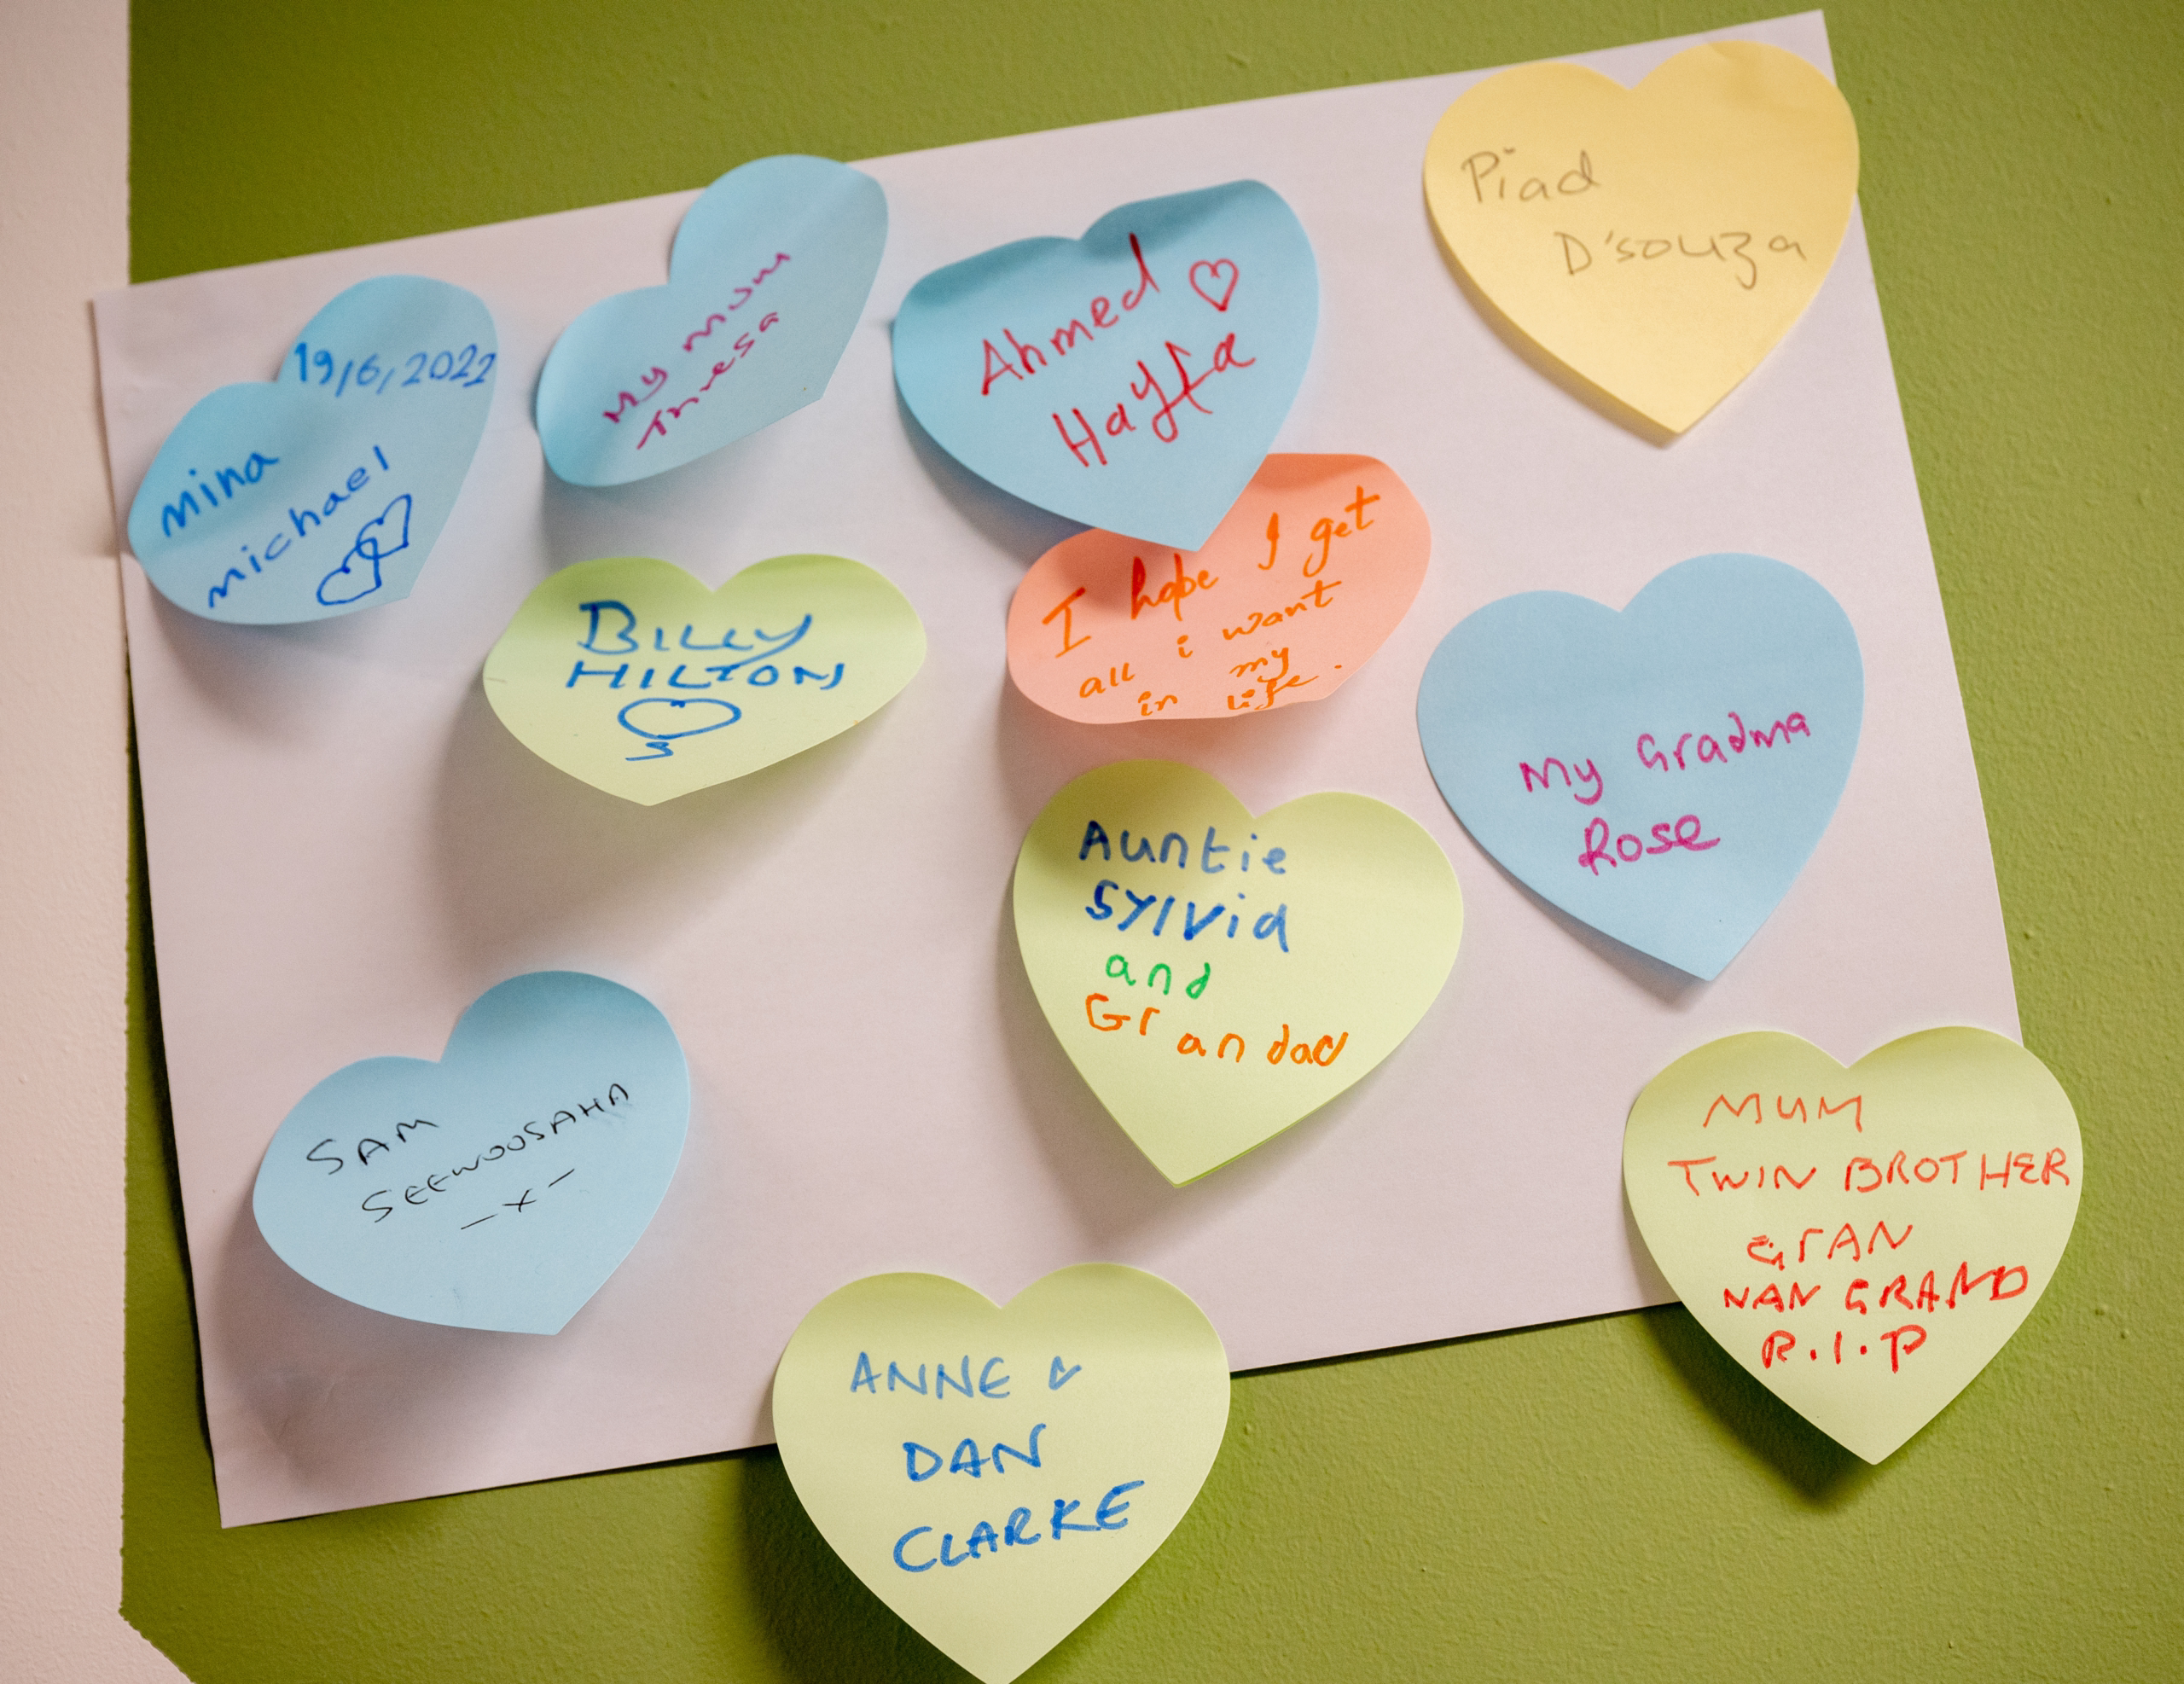 19/6/2022
mina
michael
My mum
Thresa
Ahmed
Hayfa
Piad
D'souza
BILLY
HILTON
I hope I get
all i want
in my
life.
My Gradma
Rose
Auntie
Sylvia
and
Grandad
SAM
SEEWOOSAHA
-x-
MUM
TWIN BROTHER
GrAN
NAN GRAND
R.I.P
ANNE &
DAN
CLARKE